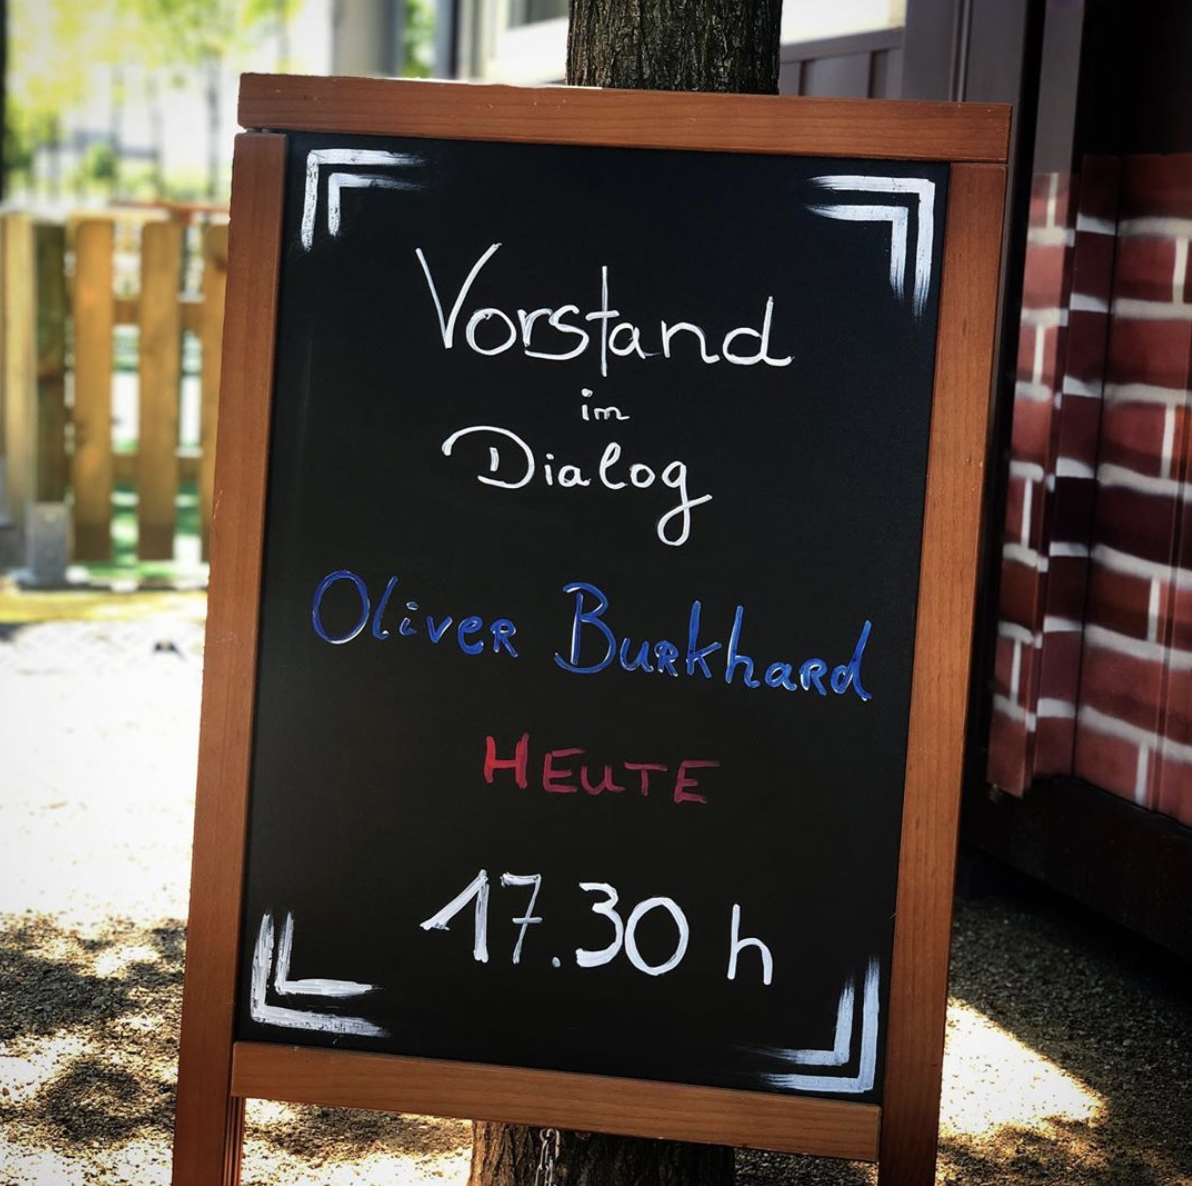 Vorstand
im
Dialog
Oliver Burkhard
HEUTE
17.30 h